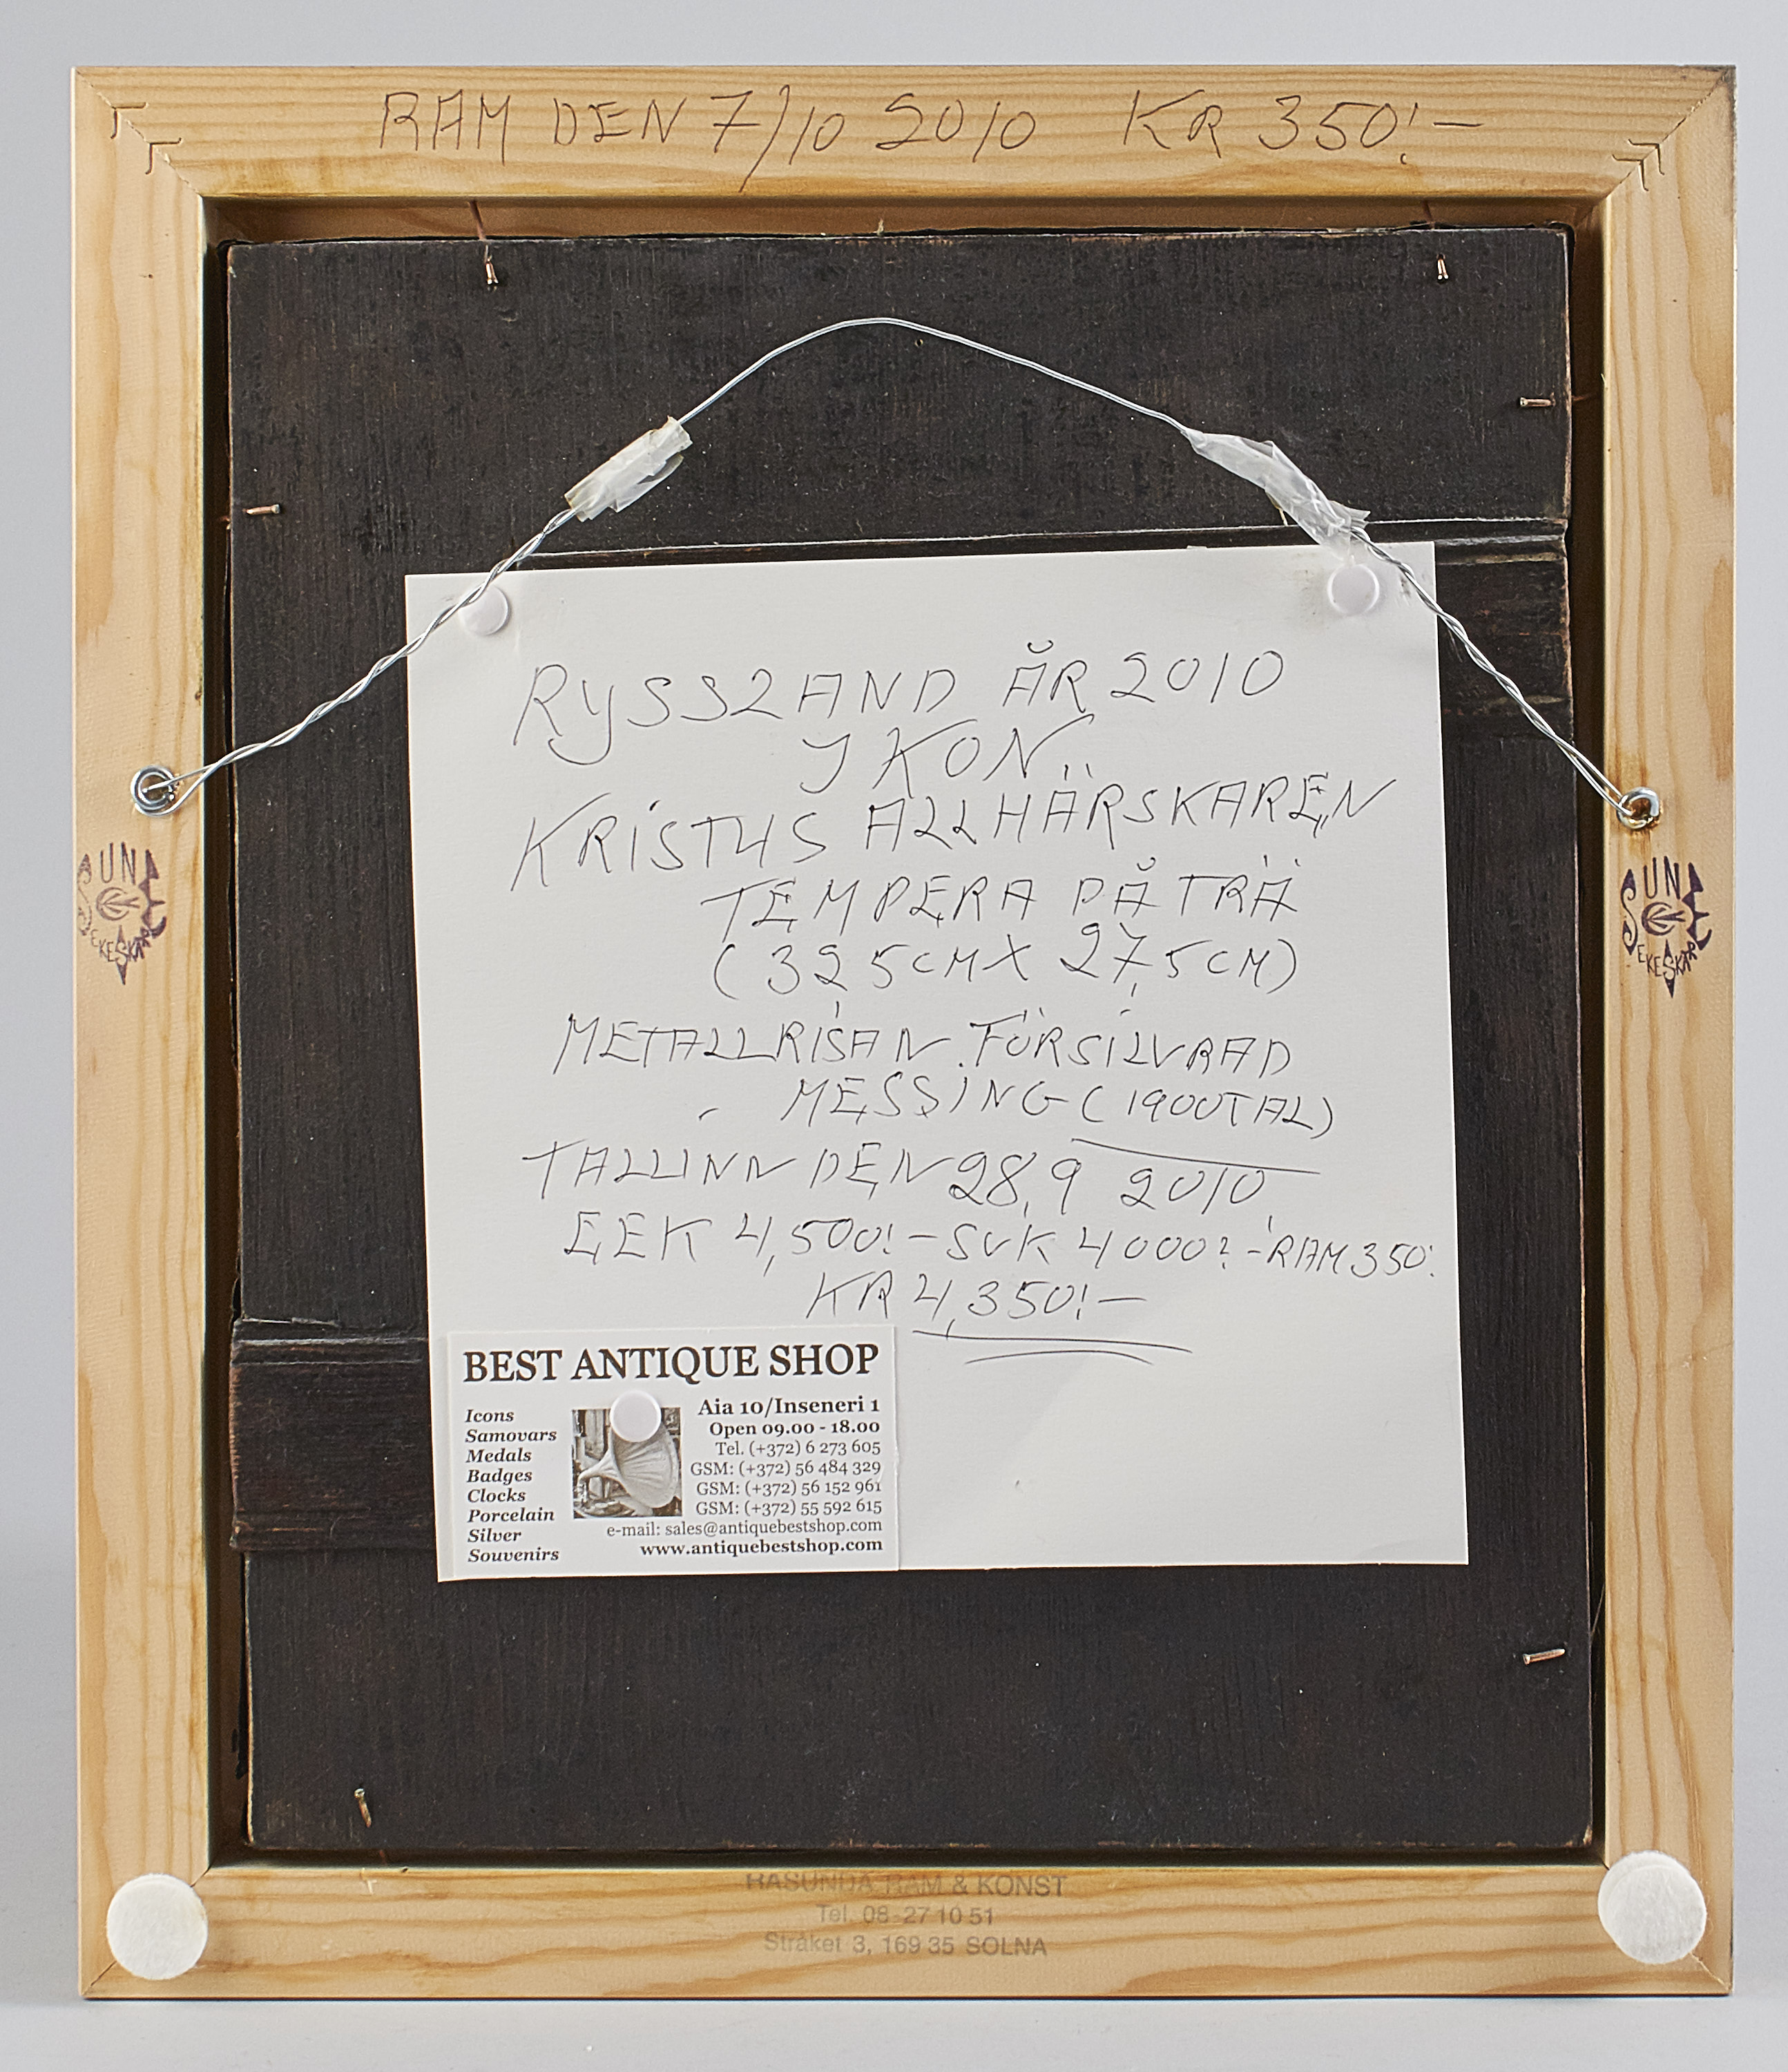 RAM DEN 7/10 2010 KR 350!-
RYSSLAND ÅR 2010
YKON
KRISTUS ALLHÄRSKAREN
TEMPERA PÅ TRÄ
(32,5CM X 27,5CM)
METALLRISAN. FÖRSILVRAD
MESSING (1900TAL)
TALLINN DEN 28,9 2010,
EEK 4,500!- SVK 4000!- RAM 350!
KR 4,350!-
BEST ANTIQUE SHOP
Icons
Samovars
Medals
Badges
Clocks
Porcelain
Silver
Souvenirs
Aia 10/Inseneri 1
Open 09.00 - 18.00
Tel. (+372) 6 273 605
GSM: (+372) 56 484 329
GSM: (+372) 56 152 961
GSM: (+372) 55 592 615
e-mail: sales@antiquebestshop.com
www.antiquebestshop.com
SUNE
EKESKÄR
SUNE
EKESKÄR
RÅSUNDA RAM & KONST
Tel. 08-27 10 51
Stråket 3, 169 35 SOLNA